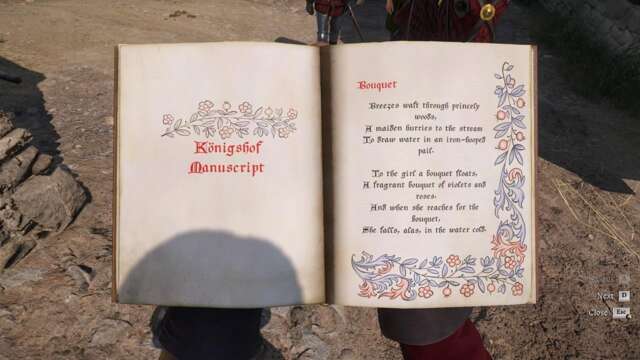 Königshof
Manuscript
Bouquet
Breezes waft through princely
woods,
A maiden hurries to the stream
To draw water in an iron-hooped
pail.
To the girl a bouquet floats,
A fragrant bouquet of violets and
roses.
And when she reaches for the
bouquet,
She falls, alas, in the water cold.
Next D
Close Esc